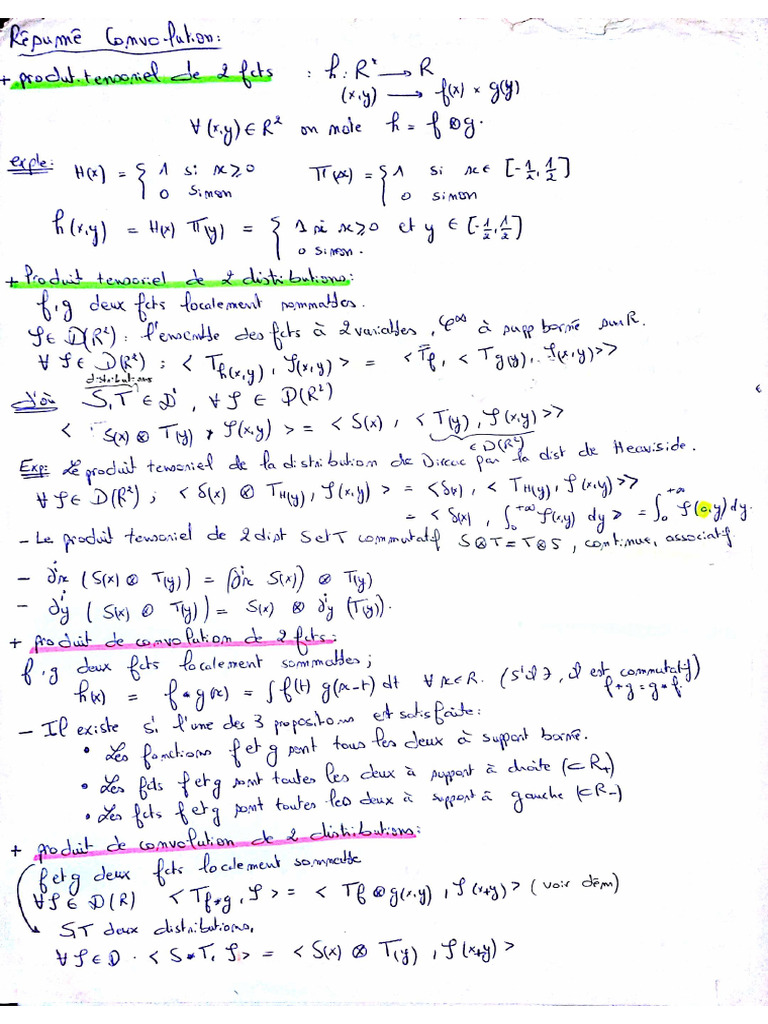 Résumé Convolution:
+ produit tensoriel de 2 fcts : h: R² → R
(x,y) → f(x) × g(y)
∀(x,y) ∈ R² on note h = f⊗g.
exple: H(x) = { 1 si x ≥ 0
0 sinon
Π(x) = { 1 si x ∈ [-1/2, 1/2]
0 sinon
h(x,y) = H(x) Π(y) = { 1 si x ≥ 0 et y ∈ [-1/2, 1/2]
0 sinon.
+ Produit tensoriel de 2 distributions:
f, g deux fcts localement sommables.
φ ∈ D(R²): l'ensemble des fcts à 2 variables, C^∞ à supp borné sur R.
∀ φ ∈ D(R²); < T_h(x,y), φ(x,y) > = < T_f, < T_g(y), φ(x,y) >>
distributions
d'où S,T ∈ D', ∀ φ ∈ D(R²)
< S(x) ⊗ T(y), φ(x,y) > = < S(x), < T(y), φ(x,y) >>
∈ D(R²)
Exp: Le produit tensoriel de la distribution de Dirac par la dist de Heaviside.
∀ φ ∈ D(R²); < δ(x) ⊗ T_H(y), φ(x,y) > = < δ(x), < T_H(y), φ(x,y) >>
= < δ(x), ∫_0^{+∞} φ(x,y) dy > = ∫_0^{+∞} φ(0,y) dy.
- Le produit tensoriel de 2 dist S et T commutatif S⊗T = T⊗S, continue, associatif
- ∂^i x (S(x) ⊗ T(y)) = (∂^i x S(x)) ⊗ T(y)
- ∂^i y (S(x) ⊗ T(y)) = S(x) ⊗ ∂^i y (T(y)).
+ produit de convolution de 2 fcts:
f, g deux fcts localement sommables;
h(x) = f * g(x) = ∫ f(t) g(x-t) dt ∀ x ∈ R. (s'il ∃, il est commutatif)
f * g = g * f.
- Il existe si l'une des 3 propositions est satisfaite:
• Les fonctions f et g sont tous les deux à support borné.
• Les fcts f et g sont toutes les deux à support à droite (⊂ R+)
• Les fcts f et g sont toutes les deux à support à gauche (⊂ R-)
+ produit de convolution de 2 distributions:
f et g deux fcts localement sommable
∀ φ ∈ D(R) < T_f*g, φ > = < T_f ⊗ g(x,y), φ(x+y) > (voir dém)
S,T deux distributions,
∀ φ ∈ D. < S * T, φ > = < S(x) ⊗ T(y), φ(x+y) >